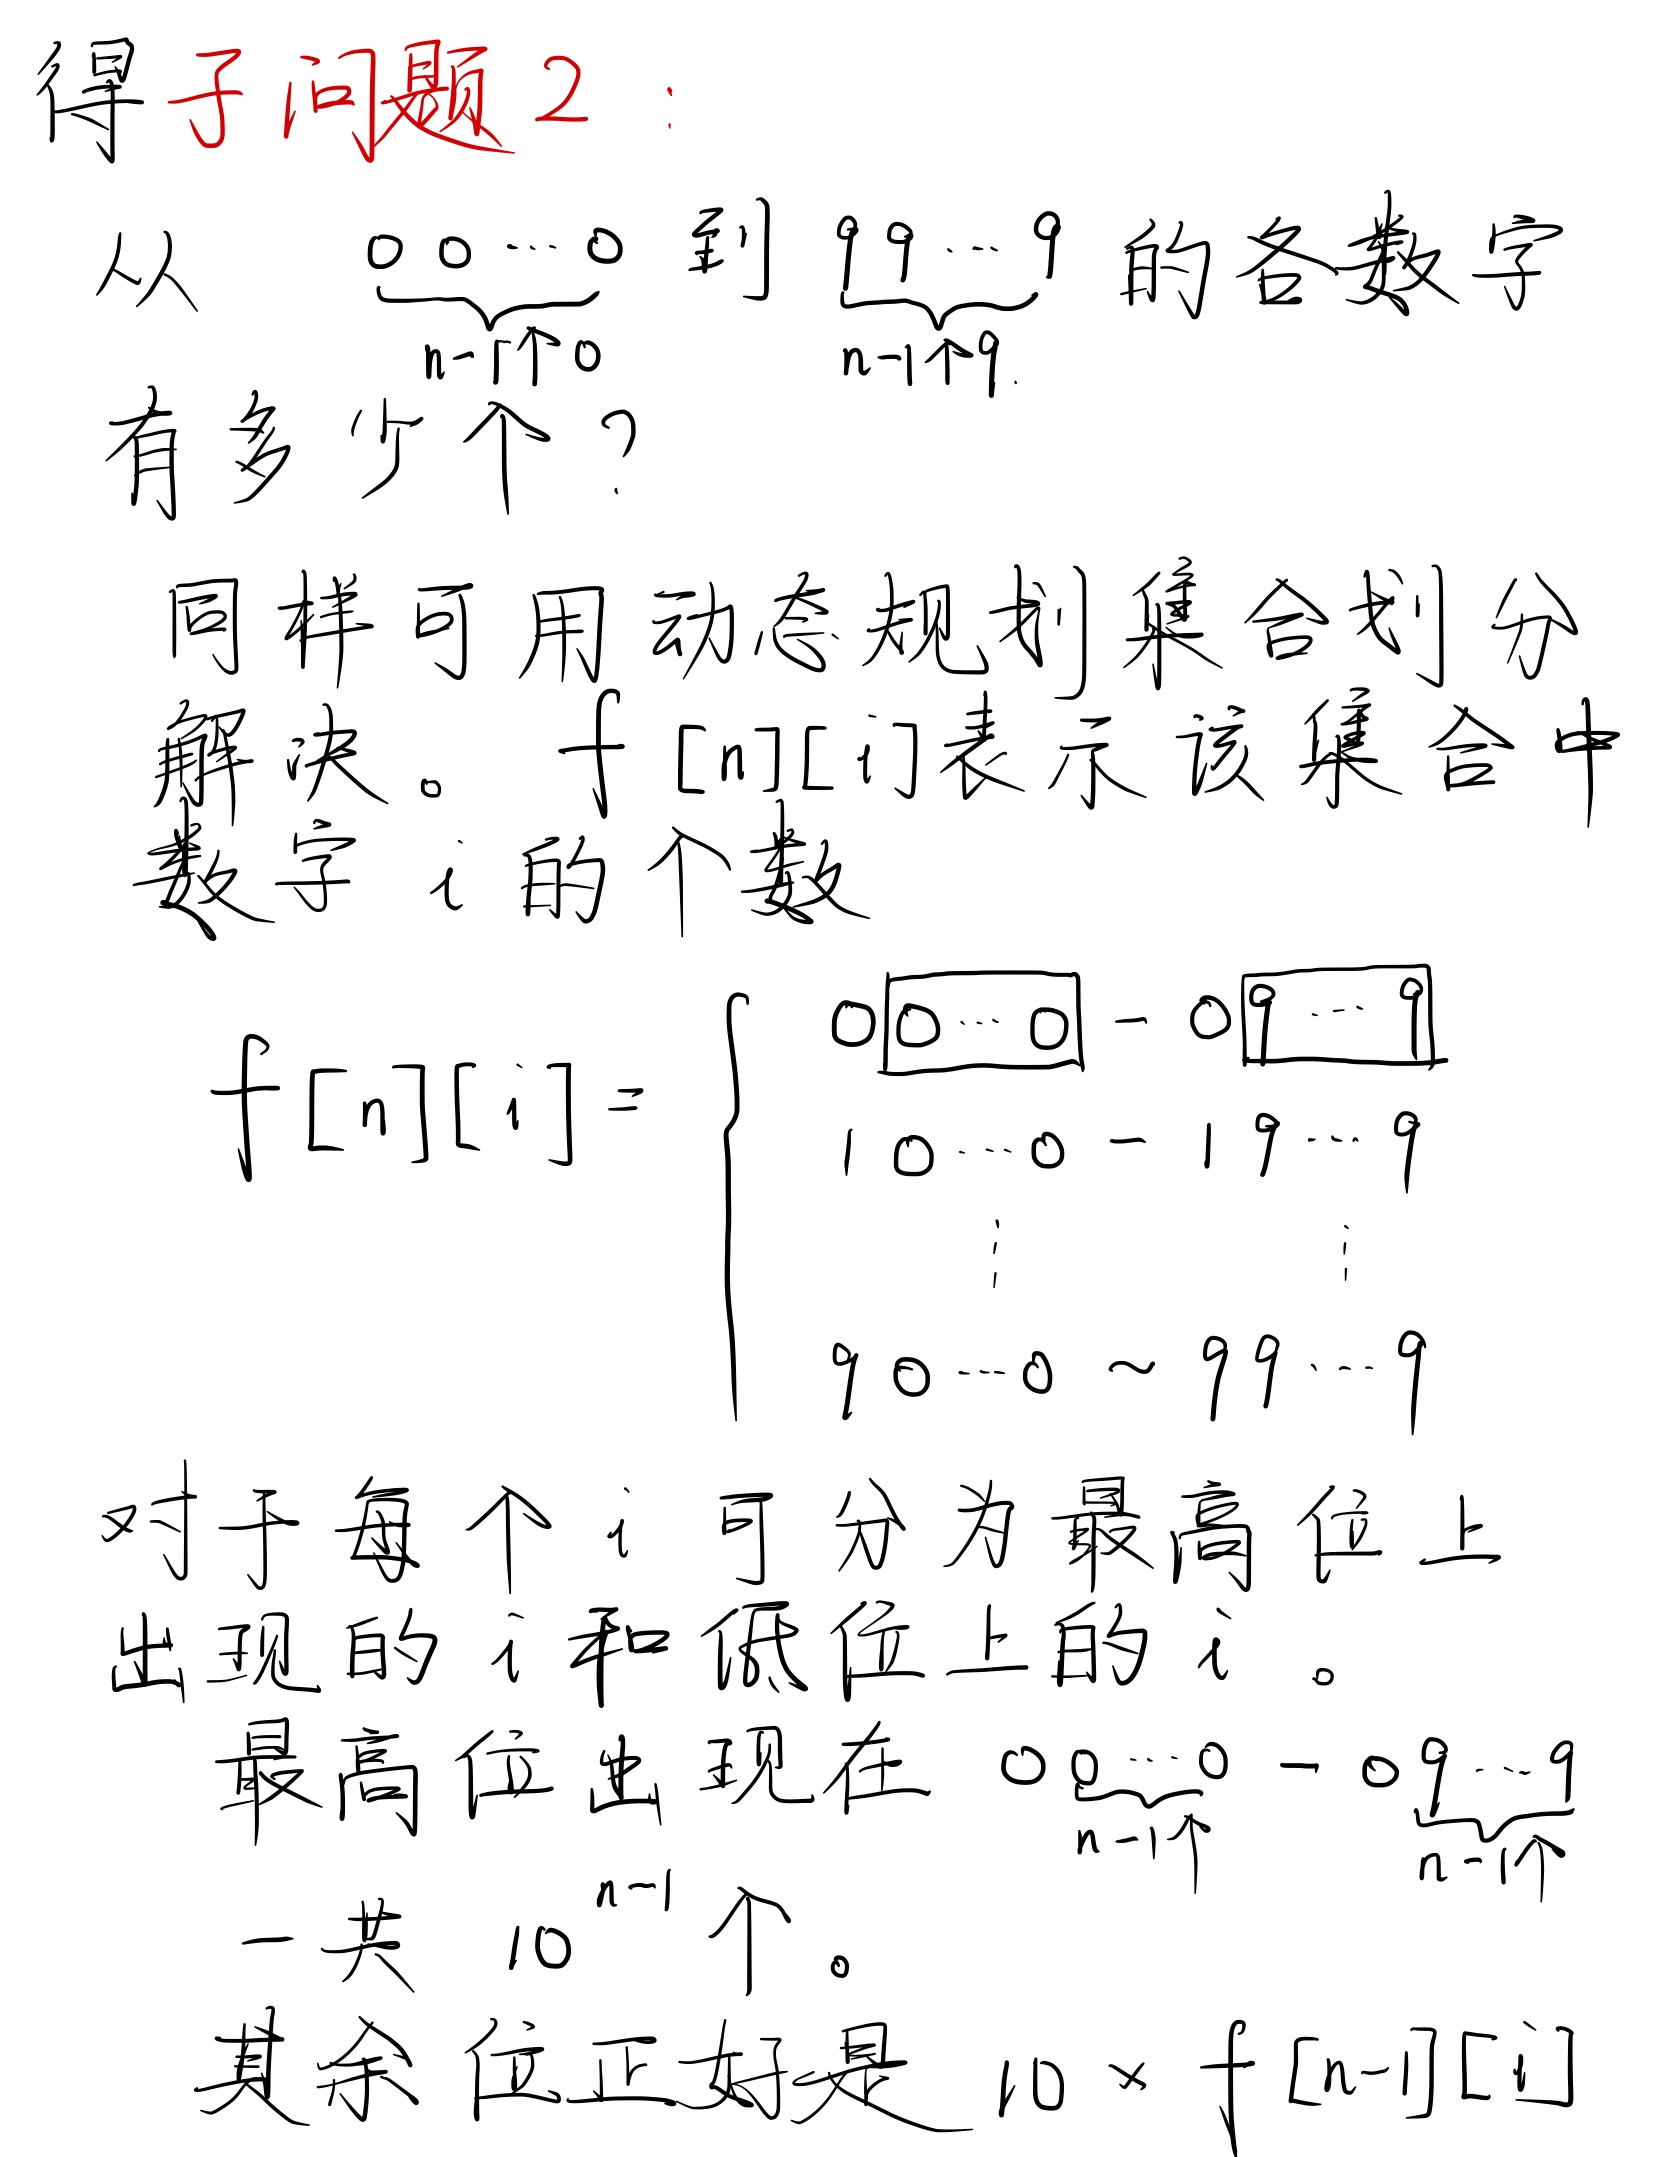 得子问题2：
从 00…0 到 99…9 的各数字
n-1个0 n-1个9
有多少个？
同样可用动态规划集合划分
解决。f[n][i]表示该集合中
数字i的个数
0 0…0 - 0 9…9
f[n][i] =
1 0…0 - 1 9…9
⋮ ⋮
9 0…0 ~ 9 9…9
对于每个i可分为最高位上
出现的i和低位上的i。
最高位出现在 0 0…0 - 0 9…9
n-1个 n-1个
一共 10^{n-1} 个。
其余位正好是 10 × f[n-1][i]